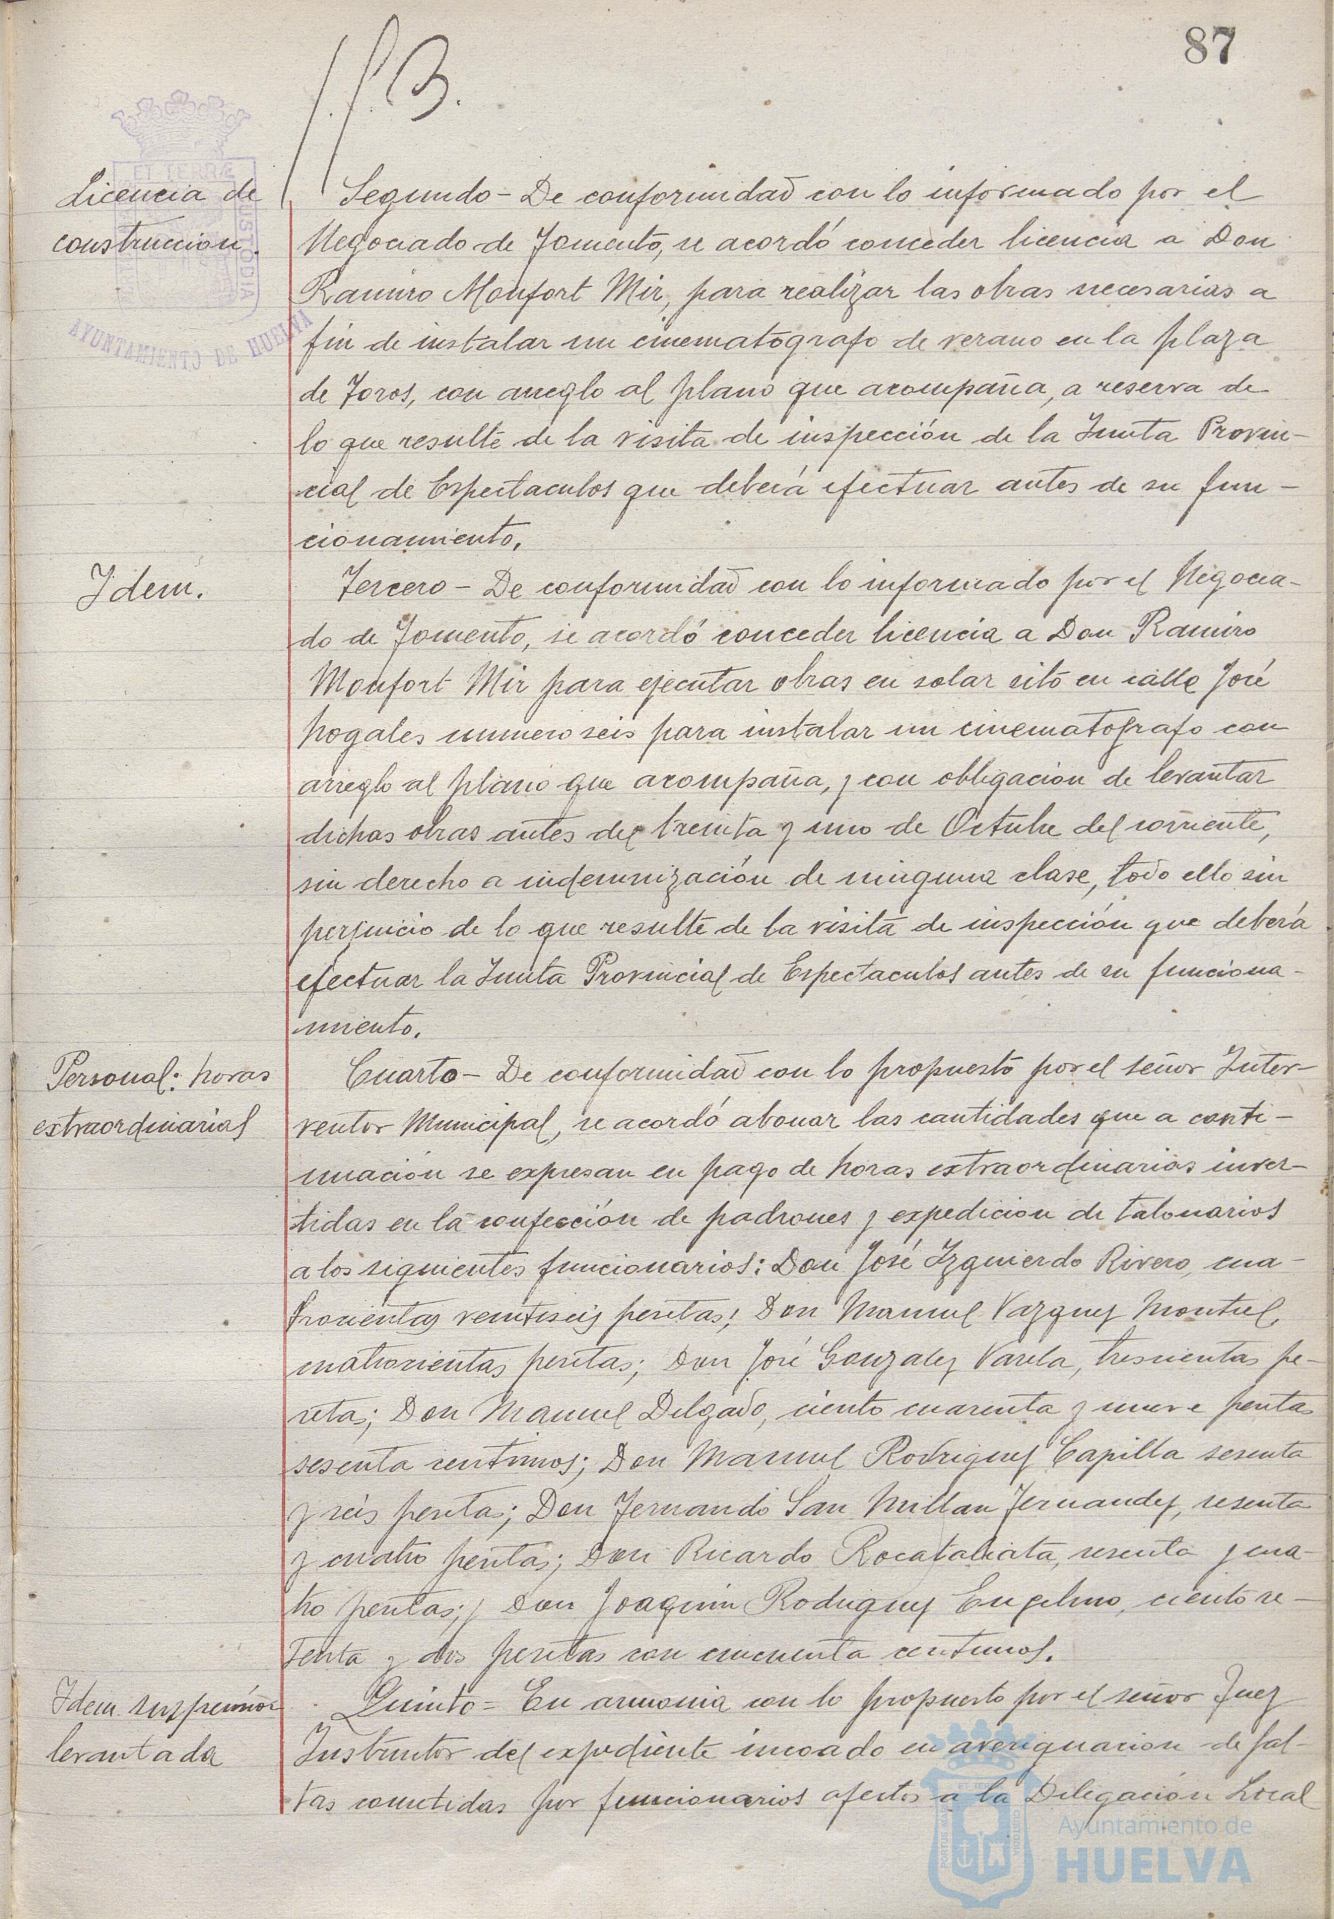 87
Licencia de
construccion.
Segundo - De conformidad con lo informado por el
Negociado de Fomento, se acordó conceder licencia a Don
Ramiro Monfort Mir, para realizar las obras necesarias a
fin de instalar un cinematografo de verano en la plaza
de Toros, con arreglo al plano que acompaña, a reserva de
lo que resulte de la visita de inspección de la Junta Provin-
cial de Espectaculos que deberá efectuar antes de su fun-
cionamiento.
Idem.
Tercero - De conformidad con lo informado por el Negocia-
do de Fomento, se acordó conceder licencia a Don Ramiro
Monfort Mir para ejecutar obras en solar sito en calle José
Nogales numero seis para instalar un cinematografo con
arreglo al plano que acompaña, y con obligacion de levantar
dichas obras antes del treinta y uno de Octubre del corriente,
sin derecho a indemnización de ninguna clase, todo ello sin
perjuicio de lo que resulte de la visita de inspección que deberá
efectuar la Junta Provincial de Espectaculos antes de su funciona-
miento.
Personal: horas
extraordinarias
Cuarto - De conformidad con lo propuesto por el señor Inter-
ventor Municipal, se acordó abonar las cantidades que a conti-
nuación se expresan en pago de horas extraordinarias inver-
tidas en la confección de padrones y expedicion de talonarios
a los siguientes funcionarios: Don José Izquierdo Rivero, cua-
trocientas veintiseis pesetas; Don Manuel Vazquez Montiel,
cuatrocientas pesetas; Don José Gonzalez Varela, trescientas pe-
setas; Don Manuel Delgado, ciento cuarenta y nueve pesetas
sesenta centimos; Don Manuel Rodriguez Capilla sesenta
y seis pesetas; Don Fernando San Millan Fernandez, sesenta
y cuatro pesetas; Don Ricardo Rocatallata, sesenta y cua-
tro pesetas; y Don Joaquin Rodriguez Engelmo, ciento se-
tenta y dos pesetas con cincuenta centimos.
Idem suspensión
levantada
Quinto = En armonia con lo propuesto por el señor Juez
Instructor del expediente incoado en averiguacion de fal-
tas cometidas por funcionarios afectos a la Delegación Local
AYUNTAMIENTO DE HUELVA
Ayuntamiento de
HUELVA